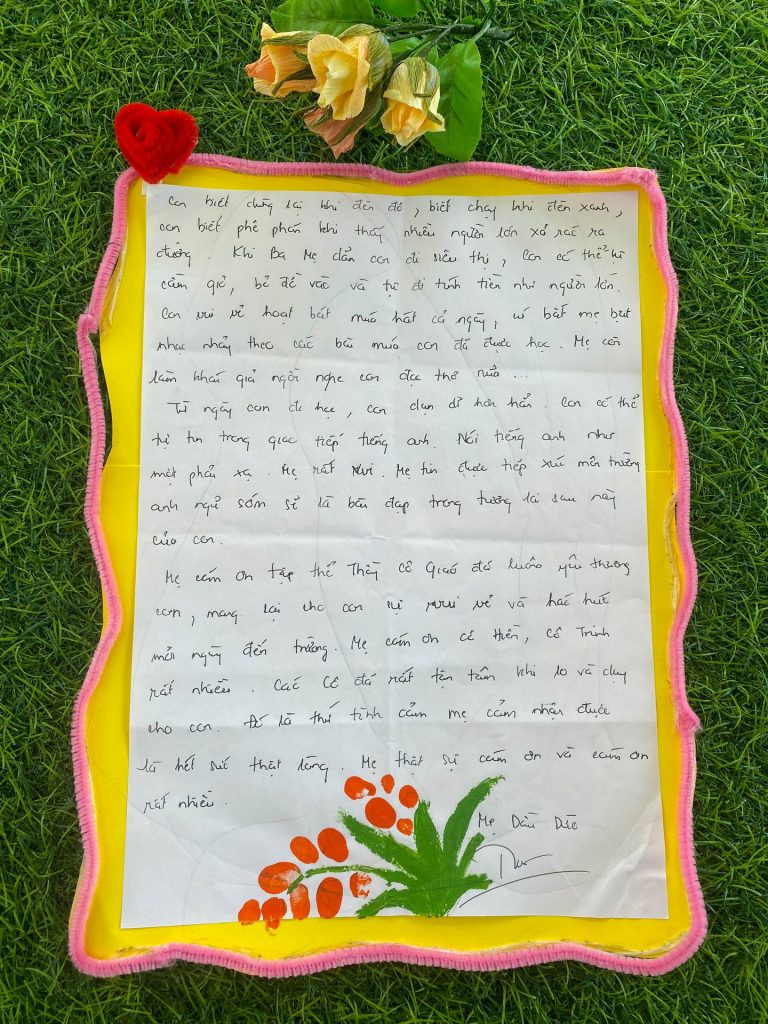 Con biết dừng lại khi đèn đỏ, biết chạy khi đèn xanh,
con biết phê phán khi thấy nhiều người lớn xả rác ra
đường. Khi Ba Mẹ dẫn con đi siêu thị, Con có thể tự
cầm giỏ, bỏ đồ vào và tự đi tính tiền như người lớn.
Con vui vẻ hoạt bát múa hát cả ngày, và bắt mẹ bật
nhạc nhảy theo các bài múa con đã được học. Mẹ còn
làm khán giả ngồi nghe con đọc thơ nữa ...
Từ ngày con đi học, con dạn dĩ hơn hẳn. Con có thể
tự tin trong giao tiếp tiếng anh. Nói tiếng anh như
một phản xạ. Mẹ rất vui. Mẹ tin được tiếp xúc môi trường
anh ngữ sớm sẽ là bàn đạp trong tương lai sau này
của con.
Mẹ cám ơn tập thể Thầy Cô Giáo đã luôn yêu thương
con, mang lại cho con sự vui vẻ và háo hức
mỗi ngày đến trường. Mẹ cám ơn cô Hiền, cô Trinh
rất nhiều. Các Cô đã rất tận tâm khi lo và dạy
cho con. Đó là thứ tình cảm mẹ cảm nhận được
là hết sức thật lòng. Mẹ thật sự cám ơn và cám ơn
rất nhiều.
Mẹ